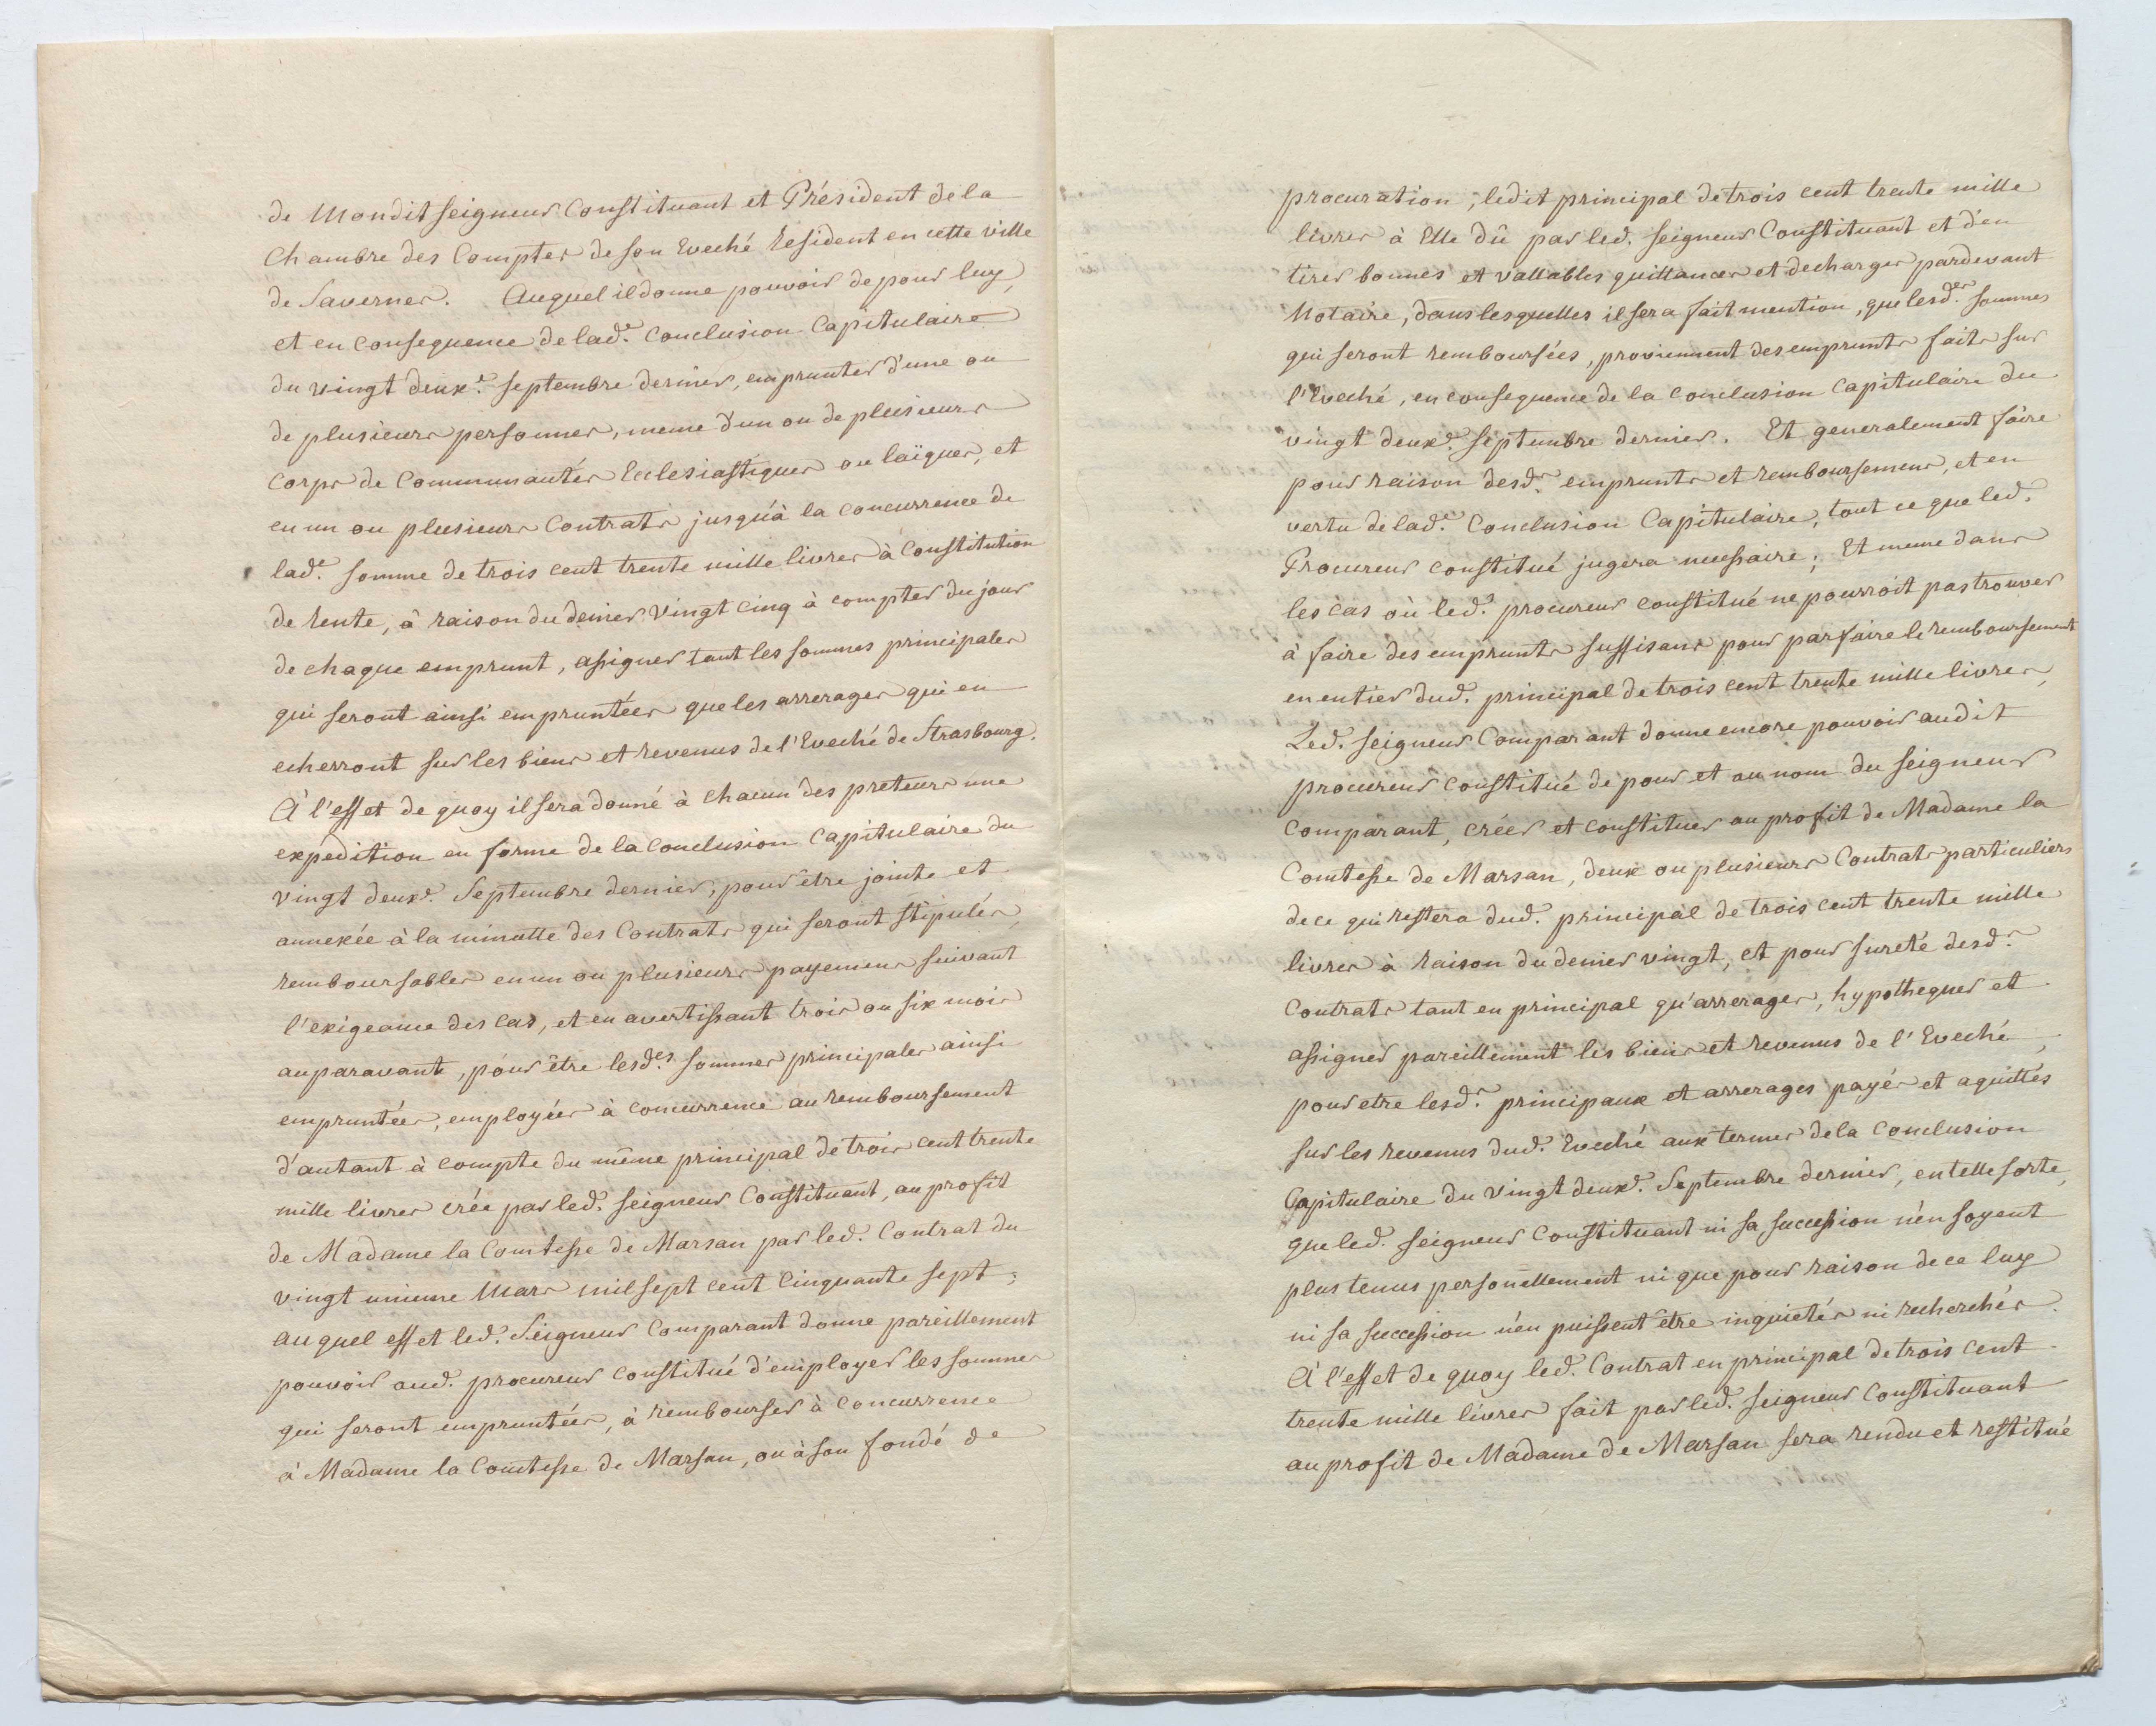 de Mondit seigneur Constituant et Président de la
Chambre des Comptes de son Eveché Resident en cette ville
de Savernes. Auquel il donne pouvoir de pour luy,
et en consequence de lad.e Conclusion Capitulaire
du vingt deux.e septembre dernier, emprunter d'une ou
de plusieurs personnes, meme d'un ou de plusieurs
corps de Communautés Ecclesiastiques ou laïques, et
en un ou plusieurs Contrats jusqu'à la concurrence de
lad.e somme de trois cent trente mille livres à Constitution
de rente, à raison du denier vingt cinq à compter du jour
de chaque emprunt, assigner tant les sommes principales
qui seront ainsi empruntées que les arrerages qui en
echerront sur les biens et revenus de l'Eveché de Strasbourg.
A l'effet de quoy il sera donné à chacun des preteurs une
expedition en forme de la conclusion Capitulaire du
vingt deux.e Septembre dernier, pour être jointe et
annexée à la minutte des Contrats qui seront stipulés,
remboursables en un ou plusieurs payemens suivant
l'exigeance des cas, et en avertissant trois ou six mois
auparavant, pour être lesd.es sommes principales ainsi
empruntées, employées à concurrence au remboursement
d'autant à compte du même principal de trois cent trente
mille livres crée par led. seigneur Constituant, au profit
de Madame la Comtesse de Marsan par led. Contrat du
vingt unieme Mars mil sept cent cinquante sept;
auquel effet led. Seigneur Comparant donne pareillement
pouvoir aud. procureur constitué d'employer les sommes
qui seront empruntées, à rembourser à concurrence
à Madame la Comtesse de Marsan, ou à son fondé de
procuration, ledit principal de trois cent trente mille
livres à Elle dû par led. seigneur Constituant et d'en
tirer bonnes et vallables quittances et decharges pardevant
Notaire, dans lesquelles il sera fait mention, que lesd.es sommes
qui seront remboursées, proviennent des emprunts faits sur
l'Eveché, en consequence de la Conclusion Capitulaire du
vingt deux.e septembre dernier. Et generalement faire
pour raison desd.s emprunts et remboursemens, et en
vertu de lad.e Conclusion Capitulaire, tout ce que led.
Procureur constitué jugera necessaire; Et meme dans
les cas où led. procureur constitué ne pourroit pas trouver
à faire des emprunts suffisans pour parfaire le remboursement
en entier dud. principal de trois cent trente mille livres,
Led. seigneur Comparant donne encore pouvoir audit
procureur constitué de pour et au nom du seigneur
comparant, créer et constituer au profit de Madame la
Comtesse de Marsan, deux ou plusieurs Contrats particuliers
de ce qui restera dud. principal de trois cent trente mille
livres à raison du denier vingt, et pour sureté desd.s
Contrats tant en principal qu'arrerages, hypothequer et
assigner pareillement les biens et revenus de l'Eveché,
pour etre lesd.s principaux et arrerages payés et aquittés
sur les revenus dud. Eveché aux termes de la Conclusion
Capitulaire du vingt deux.e Septembre dernier, en telle sorte,
que led. seigneur Constituant ni sa succession n'en soyent
plus tenus personellement ni que pour raison de ce luy
ni sa succession n'en puissent être inquietés ni recherchés.
A l'effet de quoy led. Contrat en principal de trois cent
trente mille livres fait par led. seigneur Constituant
au profit de Madame de Marsan sera rendu et restitué